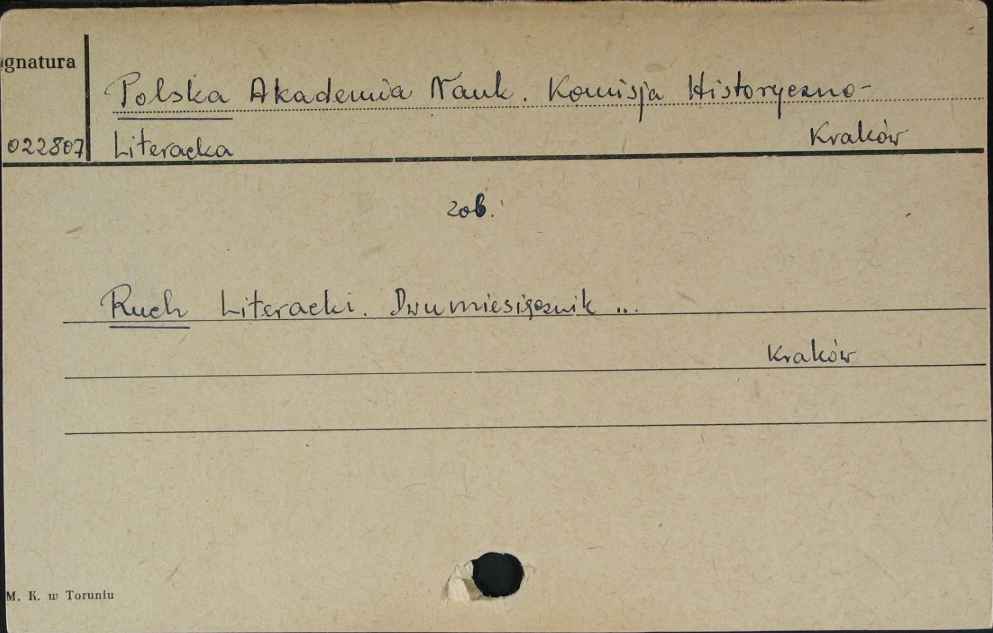 gnatura
Polska Akademia Nauk. Komisja Historyczno-
022807 Literacka Kraków
zob.
Ruch Literacki. Dwumiesięcznik ...
Kraków
M. K. w Toruniu